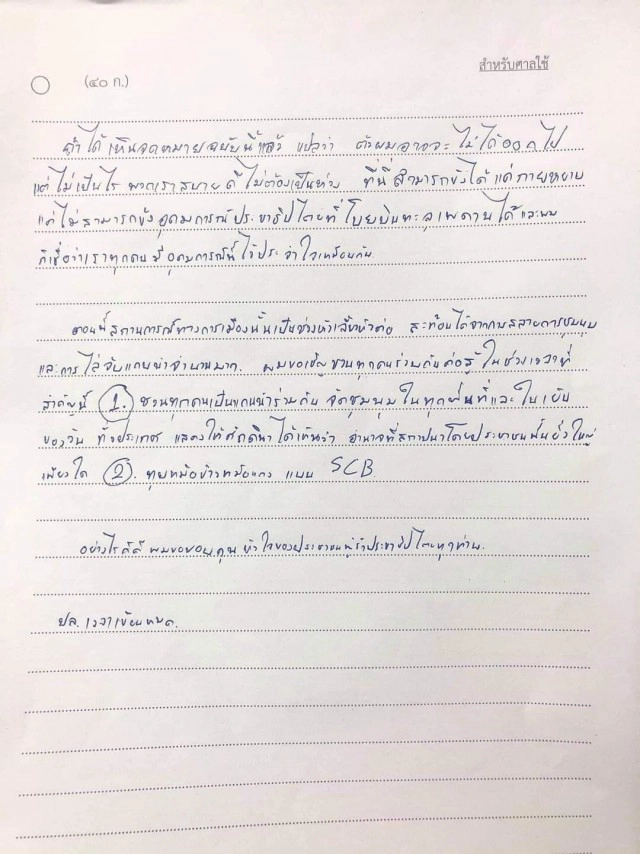 สำหรับศาลใช้
(๔๐ ก.)
ถ้าได้เห็นจดหมายฉบับนี้แล้ว แปลว่า ตัวผมอาจจะไม่ได้ออกไป
แต่ไม่เป็นไร พวกเราสบายดี ไม่ต้องเป็นห่วง ที่นี่สามารถขังได้แค่กายหยาบ
แต่ไม่สามารถขังอุดมการณ์ประชาธิปไตยที่โบยบินทะลุเพดานได้ และผม
ก็เชื่อว่าเราทุกคนมีอุดมการณ์นี้ไว้ประจำใจเหมือนกัน
ตอนนี้สถานการณ์ทางการเมืองนั้นเป็นช่วงหัวเลี้ยวหัวต่อ สะท้อนได้จากการสลายการชุมนุม
และการไล่จับแกนนำจำนวนมาก. ผมขอเชิญชวนทุกคนร่วมกันต่อสู้ในช่วงเวลาที่
สำคัญนี้ 1. ชวนทุกคนเป็นแกนนำร่วมกัน จัดชุมนุมในทุกพื้นที่และในเย็น
ของวัน ทั้งประเทศ แสดงให้ศักดินาได้เห็นว่า อำนาจที่สถาปนาโดยประชาชนนั้นยิ่งใหญ่
เพียงใด 2. ทุบหม้อข้าวหม้อแกง แบบ SCB
อย่างไรก็ดี ผมขอขอบคุณหัวใจของประชาชนผู้รักประชาธิปไตยทุกท่าน.
ปล. เวลาเขียนหมด.